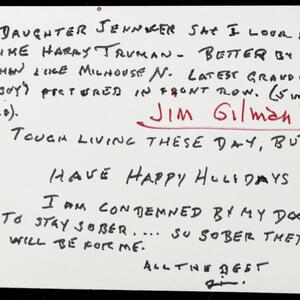 DAUGHTER JENNIFER SAY I LOOK
LIKE HARRY TRUMAN - BETTER BY
THAN LIKE MILHOUSE N. LATEST GRAND
BOY) PICTURED IN FRONT ROW. (5 W
JIM Gilman
TOUGH LIVING THESE DAY, BU
HAVE HAPPY HOLIDAYS
I AM CONDEMNED BY MY DO
TO STAY SOBER.... SO SOBER THE
WILL BE FOR ME.
ALL THE BEST
Jim.